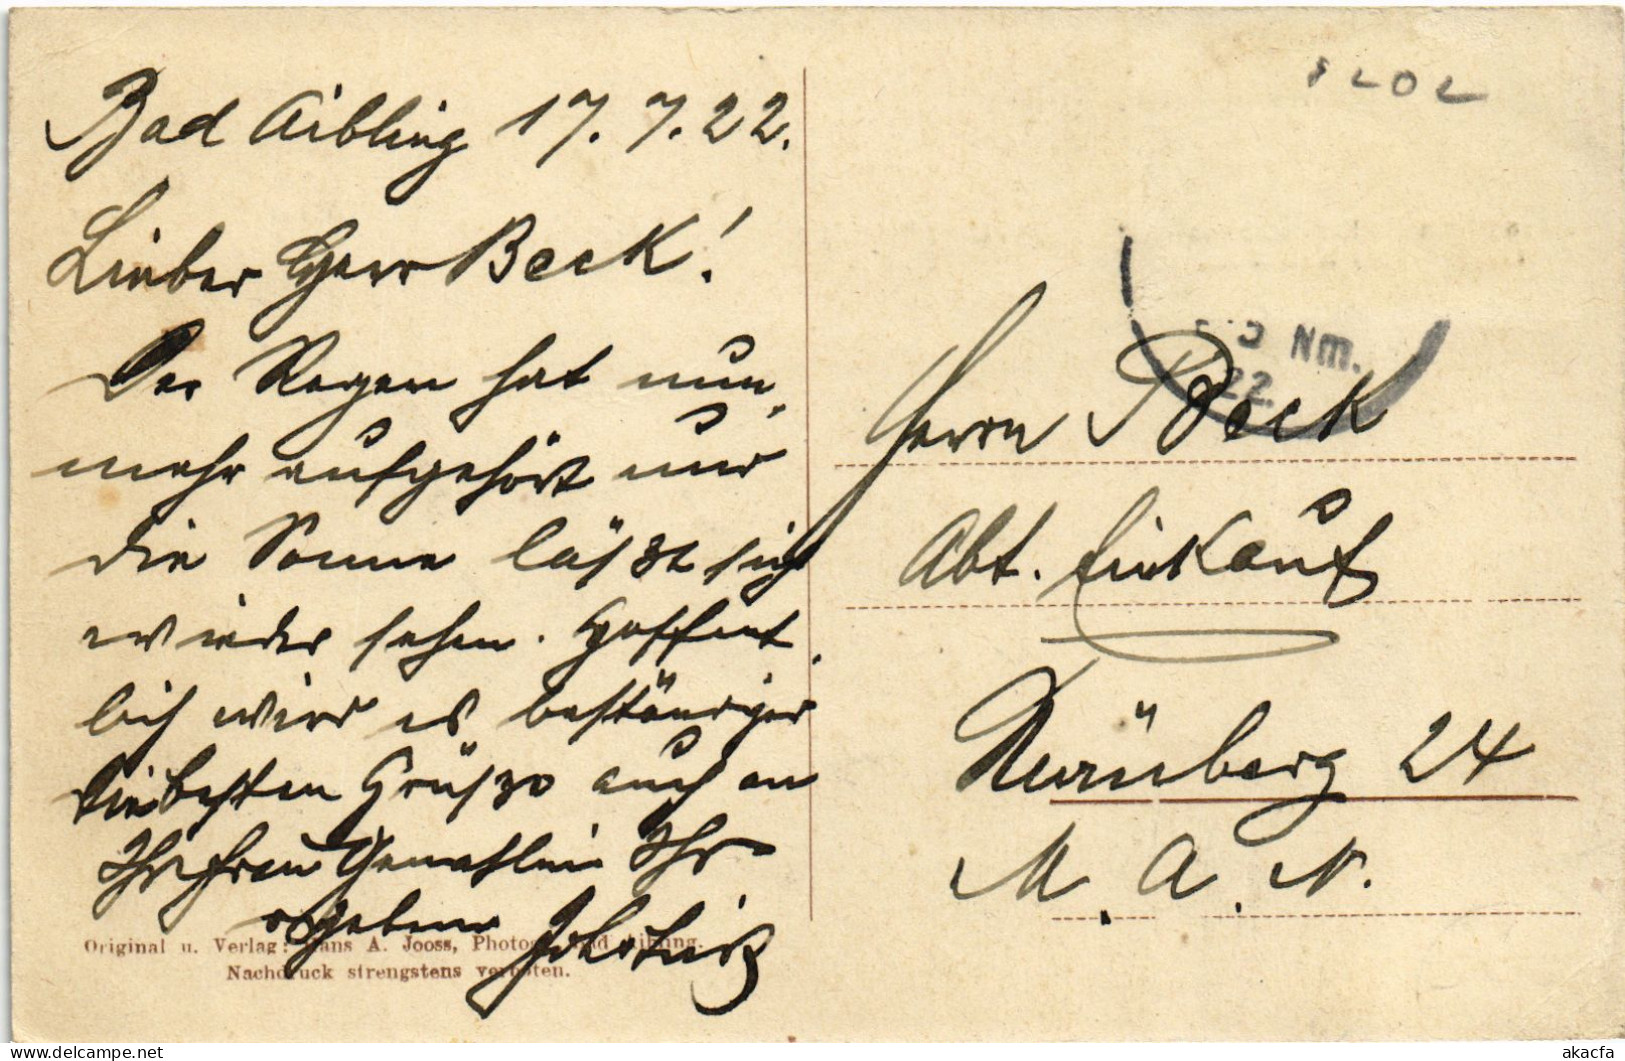 Bad Aibling 17. 7. 22.
Lieber Herr Beck!
Der Regen hat nun,
mehr aufgehört und
die Sonne läßt sich
wieder sehen. Hoffent,
lich wird es beständiger
Die besten Grüße auch an
Ihr Frau Gemahlin Ihr
ergebener
Original u. Verlag: Hans A. Jooss, Photogr. Bad Aibling.
Nachdruck strengstens verboten.
8202
Nm.
22.
Herrn Beck
Abt. Einkauf
Nürnberg 24
M. A. N.
akacfa